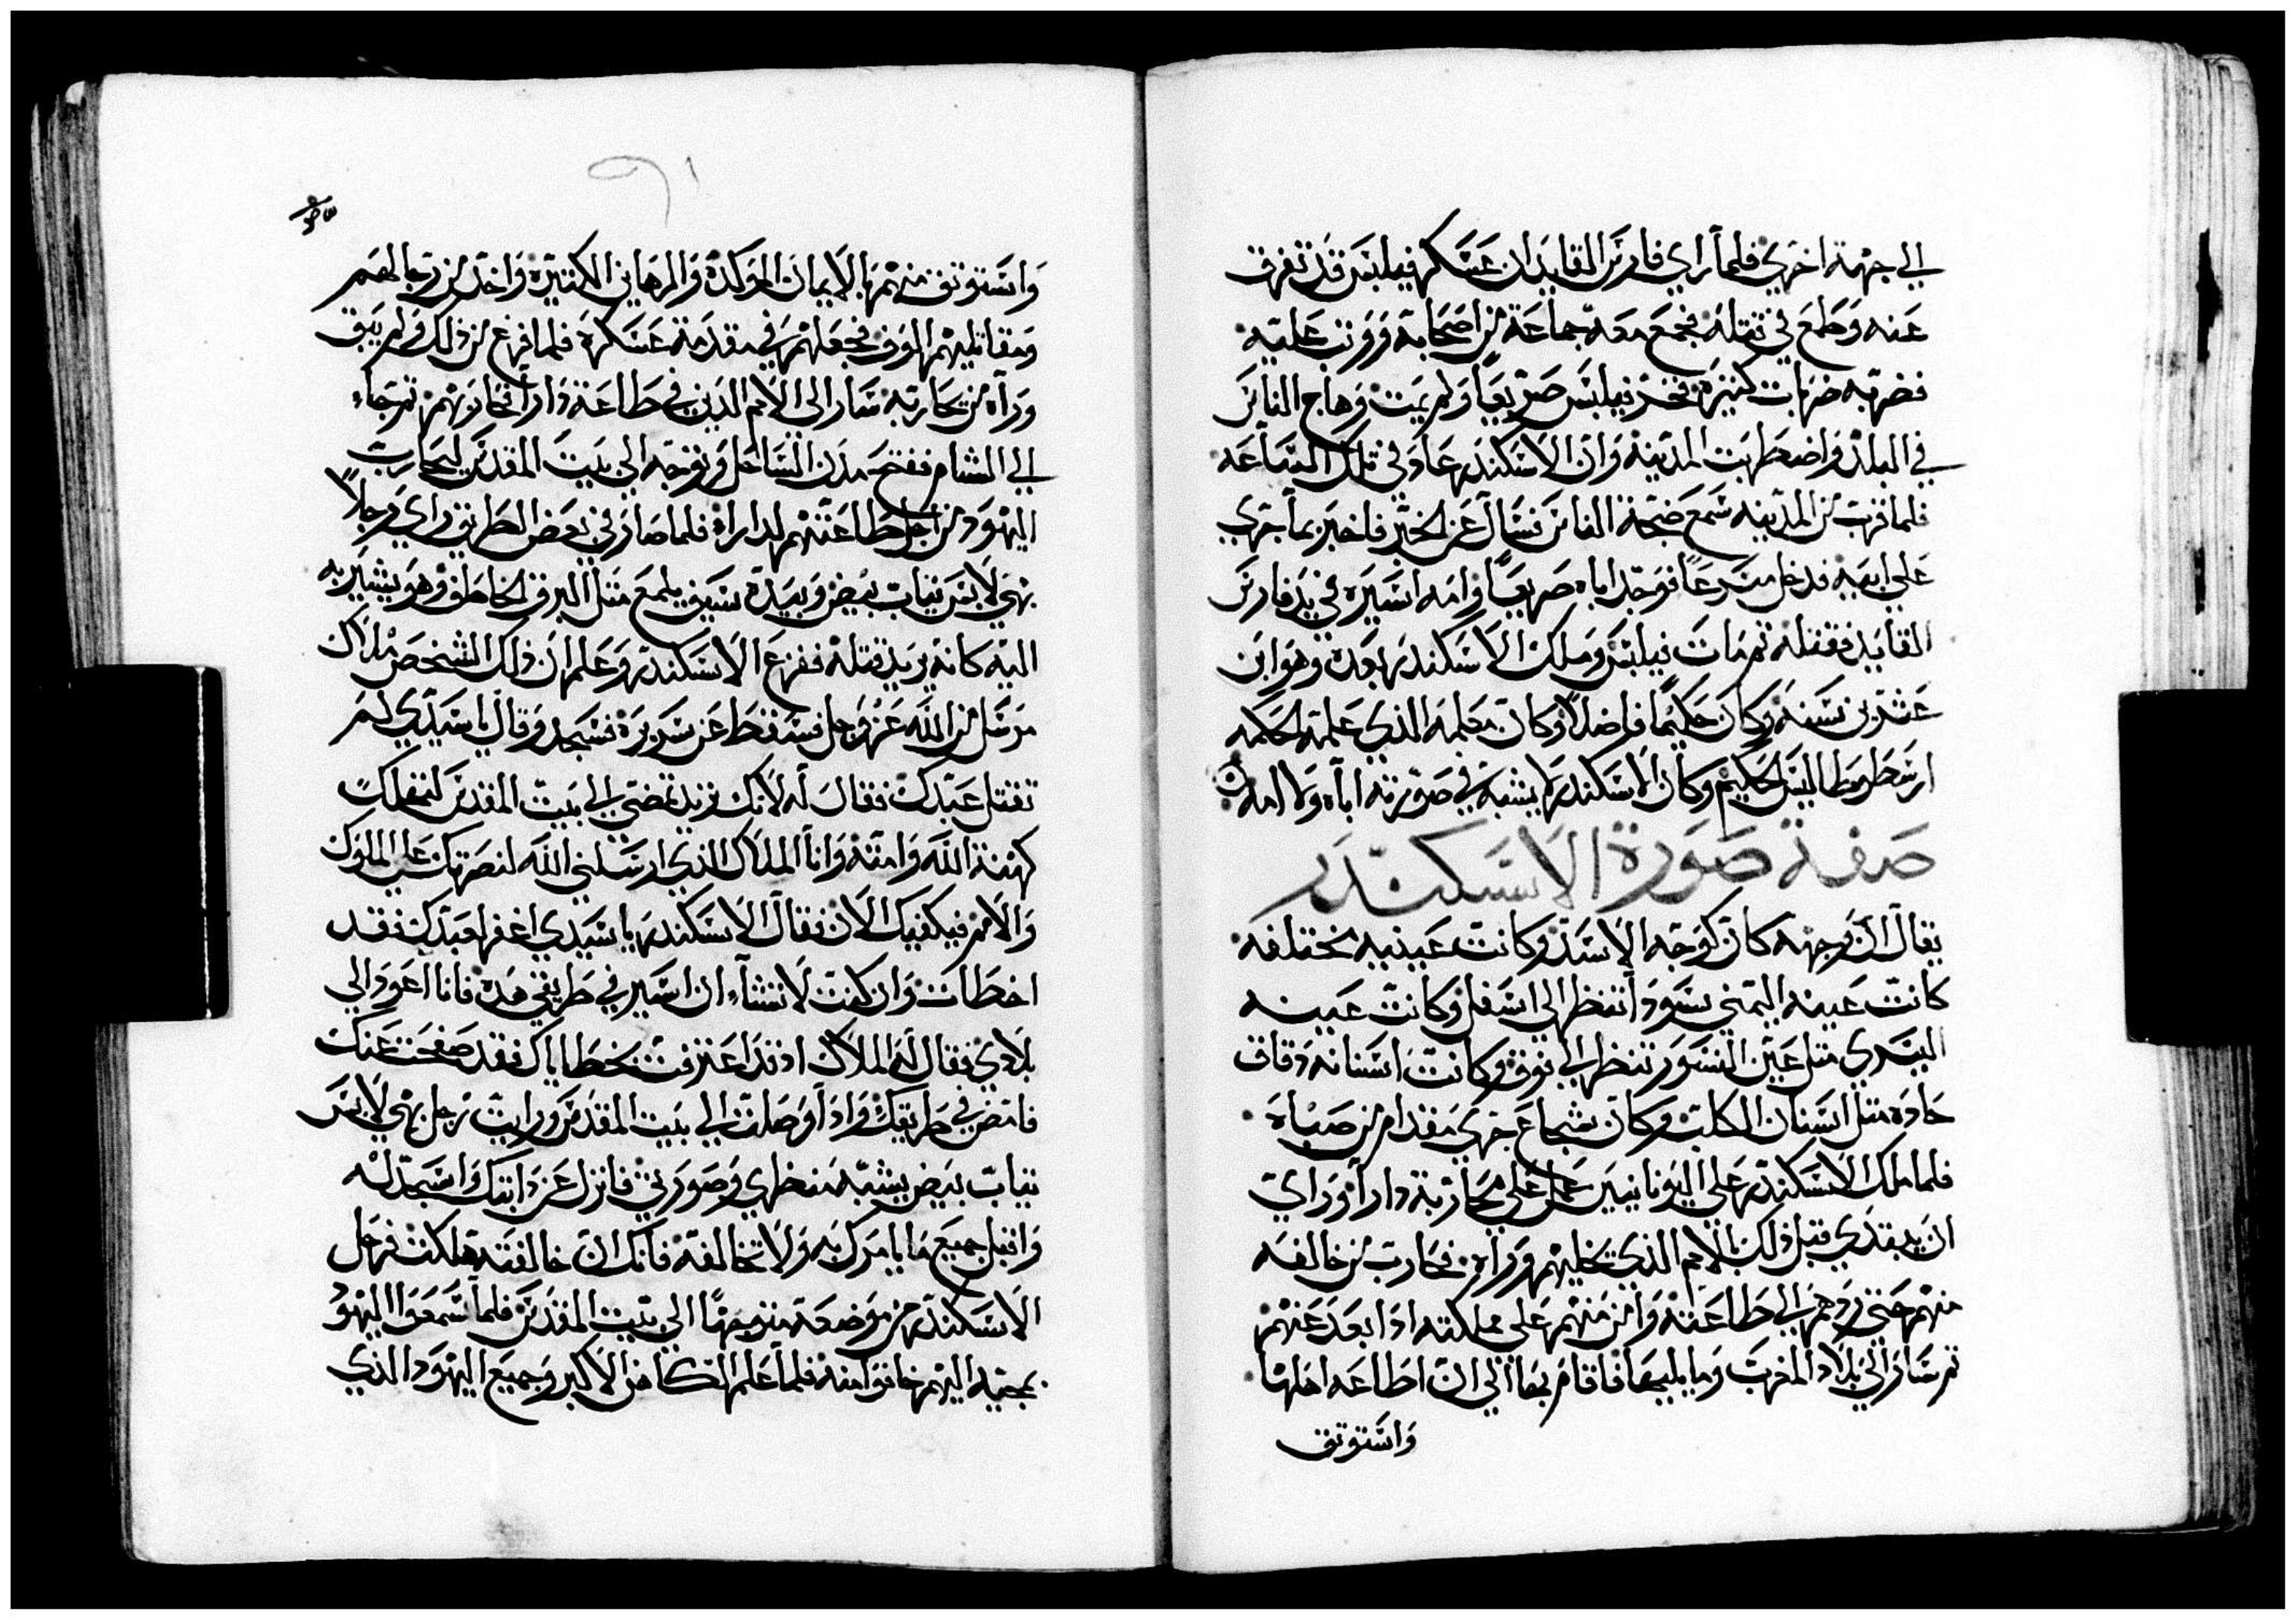 الي جهة اخري فلما راي فارس القايد ان عسكر فيلبس قد تفرق
عنه وطمع في قتله فجمع معه جماعة من اصحابه ووثب عليه
فضربه ضربات كثيرة فخر فيلبس صريعاً ولم يمت وهاج الناس
في البلد واضطربت المدينة وان الاسكندر عاد في تلك الساعه
فلما قرب من المدينه سمع ضجة الناس فسال عن الخبر فاخبر بما جري
علي ابيه فدخل مسرعاً فوجد اباه صريعاً وامه اسيرة في يد فارس
القايد فقتله ثم مات فيلبس وملك الاسكندر بعده وهو ابن
عشرين سنه وكان حكيماً فاضلاً وكان معلمه الذي علمه الحكمه
ارسطوطاليس الحكيم وكان الاسكندر لا يشبه في صورته اباه ولا امه
صفة صورة الاسكندر
يقال ان وجهه كان كوجه الاسد وكانت عينيه مختلفه
كانت عينه اليمني سودا تنظر الي اسفل وكانت عينه
اليسري مثل عين النسور تنظر الي فوق وكانت اسنانه دقاق
حاده مثل اسنان الكلب وكان شجاع جري مقدام من صباه
فلما ملك الاسكندر علي اليونانيين عمل علي محاربة دارا وراي
ان يبتدي قبل ذلك بالامم الذي يخليهم وراه فحارب من خالفه
منهم حتي ردهم الي طاعته وامن منهم علي مملكته اذا بعد عنهم
ثم سار الي بلاد المغرب وما يليها فاقام بها الي ان اطاعه اهلها
واستوثق
واستوثق منهم بالايمان الموكدة والرهاين الكثيرة واخذ من رجالهم
ومقاتليهم الوف فجعلهم في مقدمة عسكره فلما فرغ من ذلك ولم يبق
وراه من يحاربه سار الي الامم الذين في طاعة دارا فحاربهم ثم جاء
الي الشام ففتح مدن الساحل وتوجه الي بيت المقدس ليحارب
اليهود من اجل طاعتهم لدارا فلما صار في بعض الطريق راي رجلاً
بهي لابس ثياب بيض وبيده سيف يلمع مثل البرق الخاطف وهو يشير به
اليه كانه يريد قتله ففزع الاسكندر وعلم ان ذلك الشخص ملاك
مرسل من الله عز وجل فسقط عن سريره فسجد وقال يا سيدي لم
تقتل عبدك فقال له لانك تريد تمضي الي بيت المقدس لتهلك
كهنة الله وامته وانا الملاك الذي ارسلني الله لنصرتك علي الملوك
والامم فيكفيك الان فقال الاسكندر يا سيدي اغفر لعبدك فقد
اخطات وان كنت لا تشاء ان اسير في طريقي هذه فانا اعود الي
بلادي فقال له الملاك اذ قد اعترفت بخطاياك فقد صفحت عنك
فامض في طريقك واذا وصلت الي بيت المقدس ورايت رجل بهي لابس
ثياب بيض يشبه منظري وصورتي فانزل عن دابتك واسجد له
واقبل جميع ما يامرك به ولا تخالفه فانك ان خالفته هلكت فرحل
الاسكندر من موضعه متوجهاً الي بيت المقدس فلما سمعوا اليهود
بمجيه اليهم خافوا منه فلما علم الكاهن الاكبر وجميع اليهود الذي